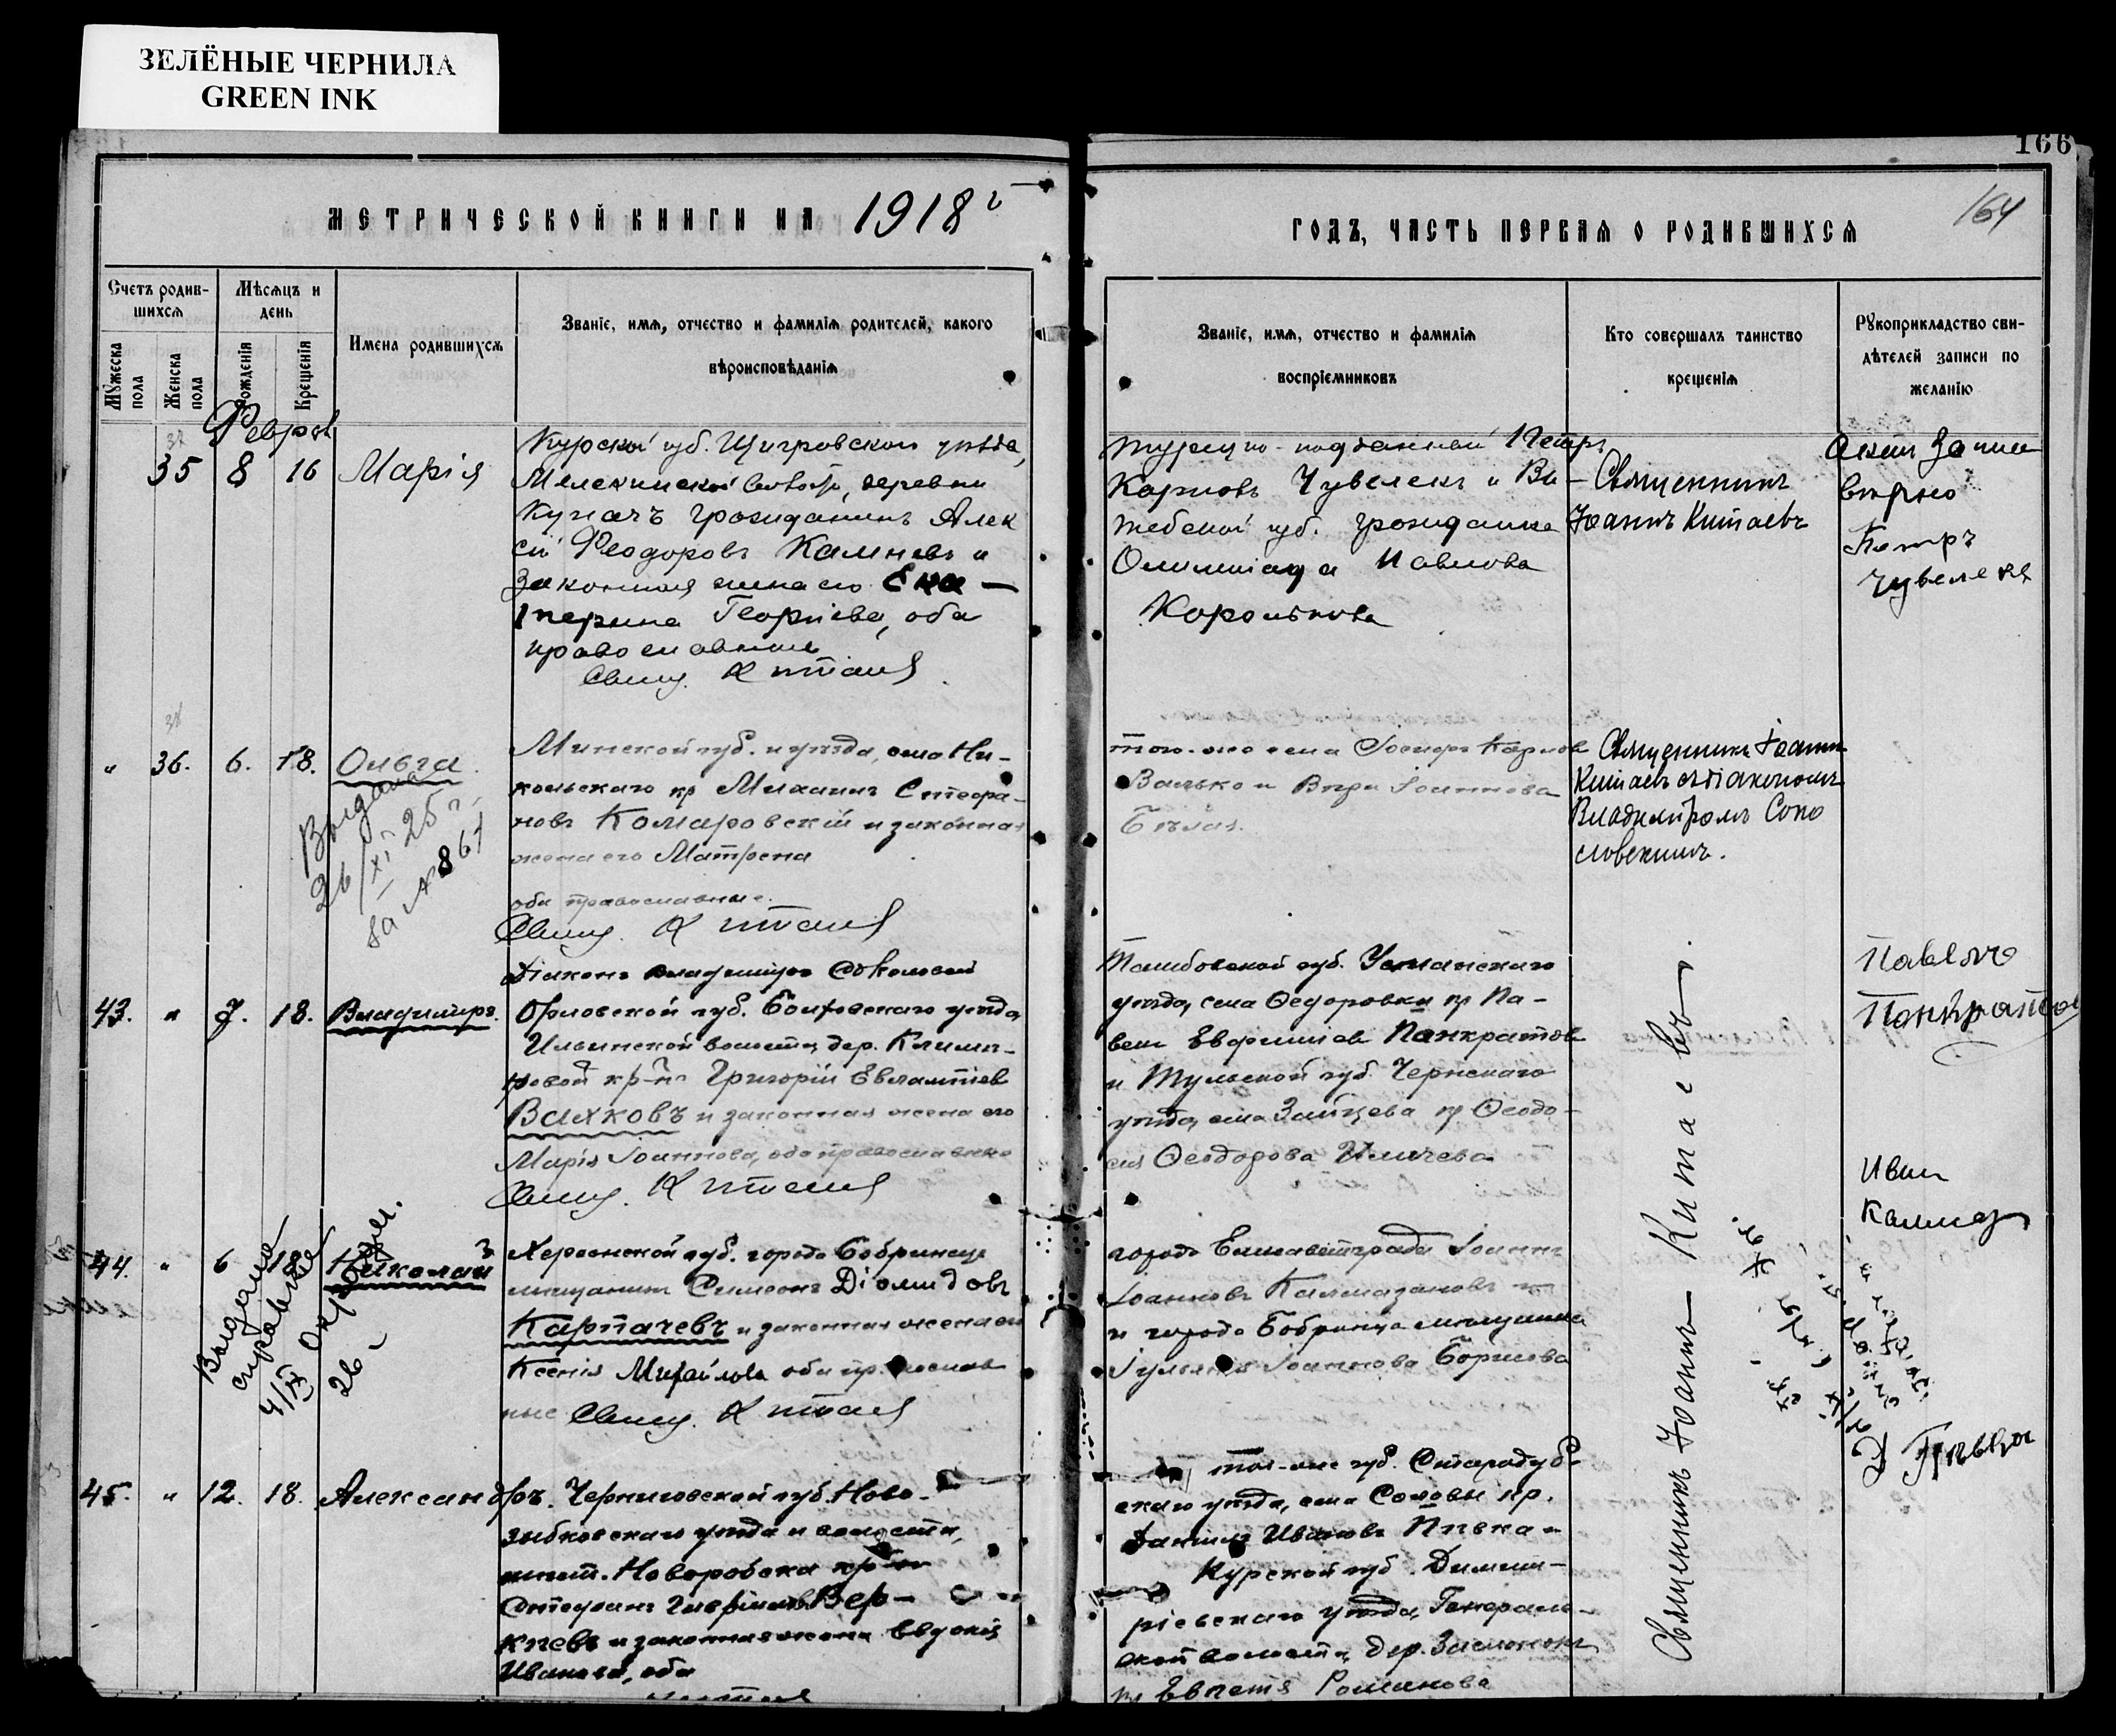 ЗЕЛЁНЫЕ ЧЕРНИЛА
GREEN INK
166
164
МЕТРИЧЕСКОЙ КНИГИ НА 1918 г
ГОДЪ, ЧАСТЬ ПЕРВАЯ О РОДИВШИХСЯ
Счетъ родив-
шихся
Мѣсяцъ и
день
Имена родившихся
Званіе, имя, отчество и фамилія родителей, какого
вѣроисповѣданія
Мужеска
пола
Женска
пола
Рожденія
Крещенія
Званіе, имя, отчество и фамилія
воспріемниковъ
Кто совершалъ таинство
крещенія
Рукоприкладство сви-
дѣтелей записи по
желанію
Феврал
35 8 16 Марія
Курской губ. Щигровскои уѣзда,
деревни
гражданинъ Алек
сѣй Феодоровъ Калневъ и
законная жена его Ека-
терина Георгіева, оба
православные
Свящ. Китаев
турецко-подданный Петръ
Карповъ Чувелекъ и Ви-
тебской губ. гражданка
Олимпіада Павлова
Королькова
Священникъ
Іоаннъ Китаевъ
вѣрно
Петръ
Чувелекъ
" 36. 6. 18. Ольга
Выдана
26/XI 25 г.
за № 861
Минской губ. и уѣзда, села Ни-
кольскаго кр Михаилъ Стефа-
новъ Комаровскій и законная
жена его Матрона
оба православные.
Свящ. Китаев
Діаконъ Владиміръ Соколовскій
того-же села Іосифъ Карпов
Валько и Вѣра Іоаннова
Бѣлая.
Священникъ Іоаннъ
Китаевъ съ діакономъ
Владиміромъ Соко
ловскимъ.
43. " 7. 18. Владиміръ.
Орловской губ. Болховскаго уѣзда,
Ильинской волости, дер. Климо-
Григорій Евлампіев
Валковъ и законная жена его
Марія Іоаннова, оба православные
Свящ. Китаев
Тамбовской губ. Усманскаго
уѣзда, села Федоровки кр Па-
вел Панкратов
и Тульской губ. Чернскаго
уѣзда, села Зайцева кр Феодо-
сія Феодорова
Павелъ
Панкратов
44. " 6 18 Николай
Выдана
справка
4/IX
26
Херсонской губ. города Бобринца
мѣщанинъ Симеонъ Діомидовъ
Карпачевъ и законная жена его
Ксенія Михайлова оба православ
ные Свящ. Китаев
города Елисаветграда Іоаннъ
Іоанновъ Калмазановъ
и города Бобринца мѣщанка
Іуліанія Іоаннова Борисова
Иван
Священникъ Іоаннъ Китаевъ
45. " 12. 18. Александръ.
Черниговской губ. Ново-
зыбковскаго уѣзда и волости,
Стефанъ Вер-
и законная жена Евдокія
Иванова, оба
той-же губ. Стародуб-
скаго уѣзда, села Соловы кр.
Даніилъ Ивановъ Пивка и
Курской губ. Димит-
ріевскаго уѣзда, Генераль-
ской волости, дер.
Романова
Д Пивка